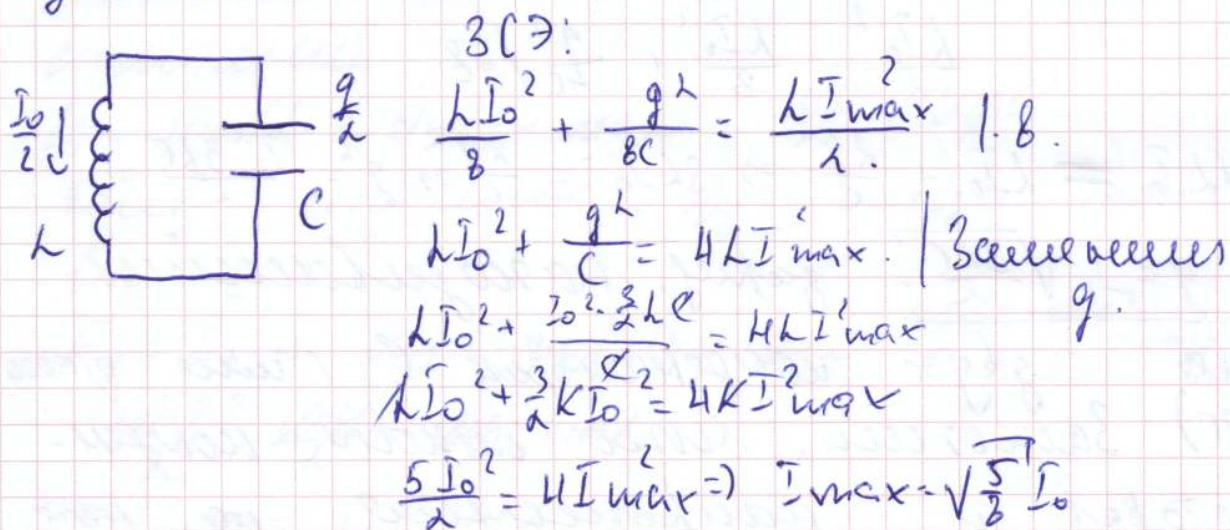 ЗСЭ:
I₀/2 ↓ L q/2 C
LI₀²/8 + q²/8C = LI²max/2. |·8.
LI₀² + q²/C = 4LI²max. | Заменим q.
LI₀² + I₀²·3/2 LC/C = 4LI²max
LI₀² + 3/2 LI₀² = 4LI²max
5I₀²/2 = 4I²max => Imax = √5/8 I₀